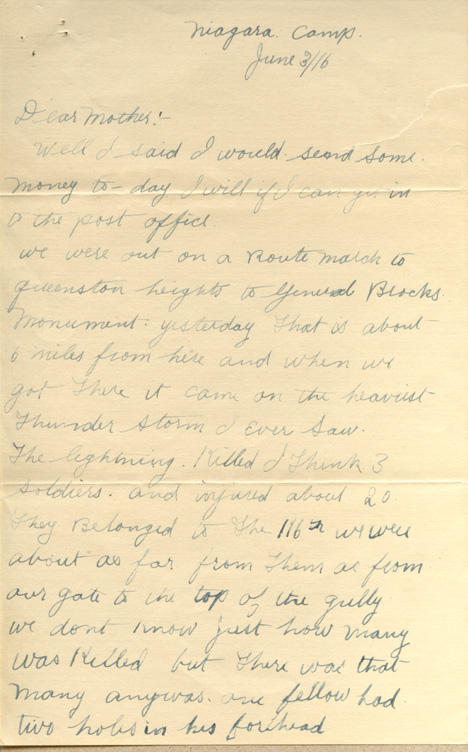 Niagara. Camp.
June 3/16
Dear Mother:-
Well I said I would send some.
money to-day I will if I can get in
to the post office.
we were out on a Route march to
Queenston heights to General Brocks.
Monument. yesterday That is about
6 miles from here and when we
got There it came on the heaviest
Thunder storm I Ever saw.
The lightning. Killed I Think 3
soldiers. and injured about 20.
They Belonged to The 116th we were
about as far from Them as from
our gate to the top of the gully
we dont Know just how many
was Killed but There was that
many anyway. one fellow had
two holes in his forehead